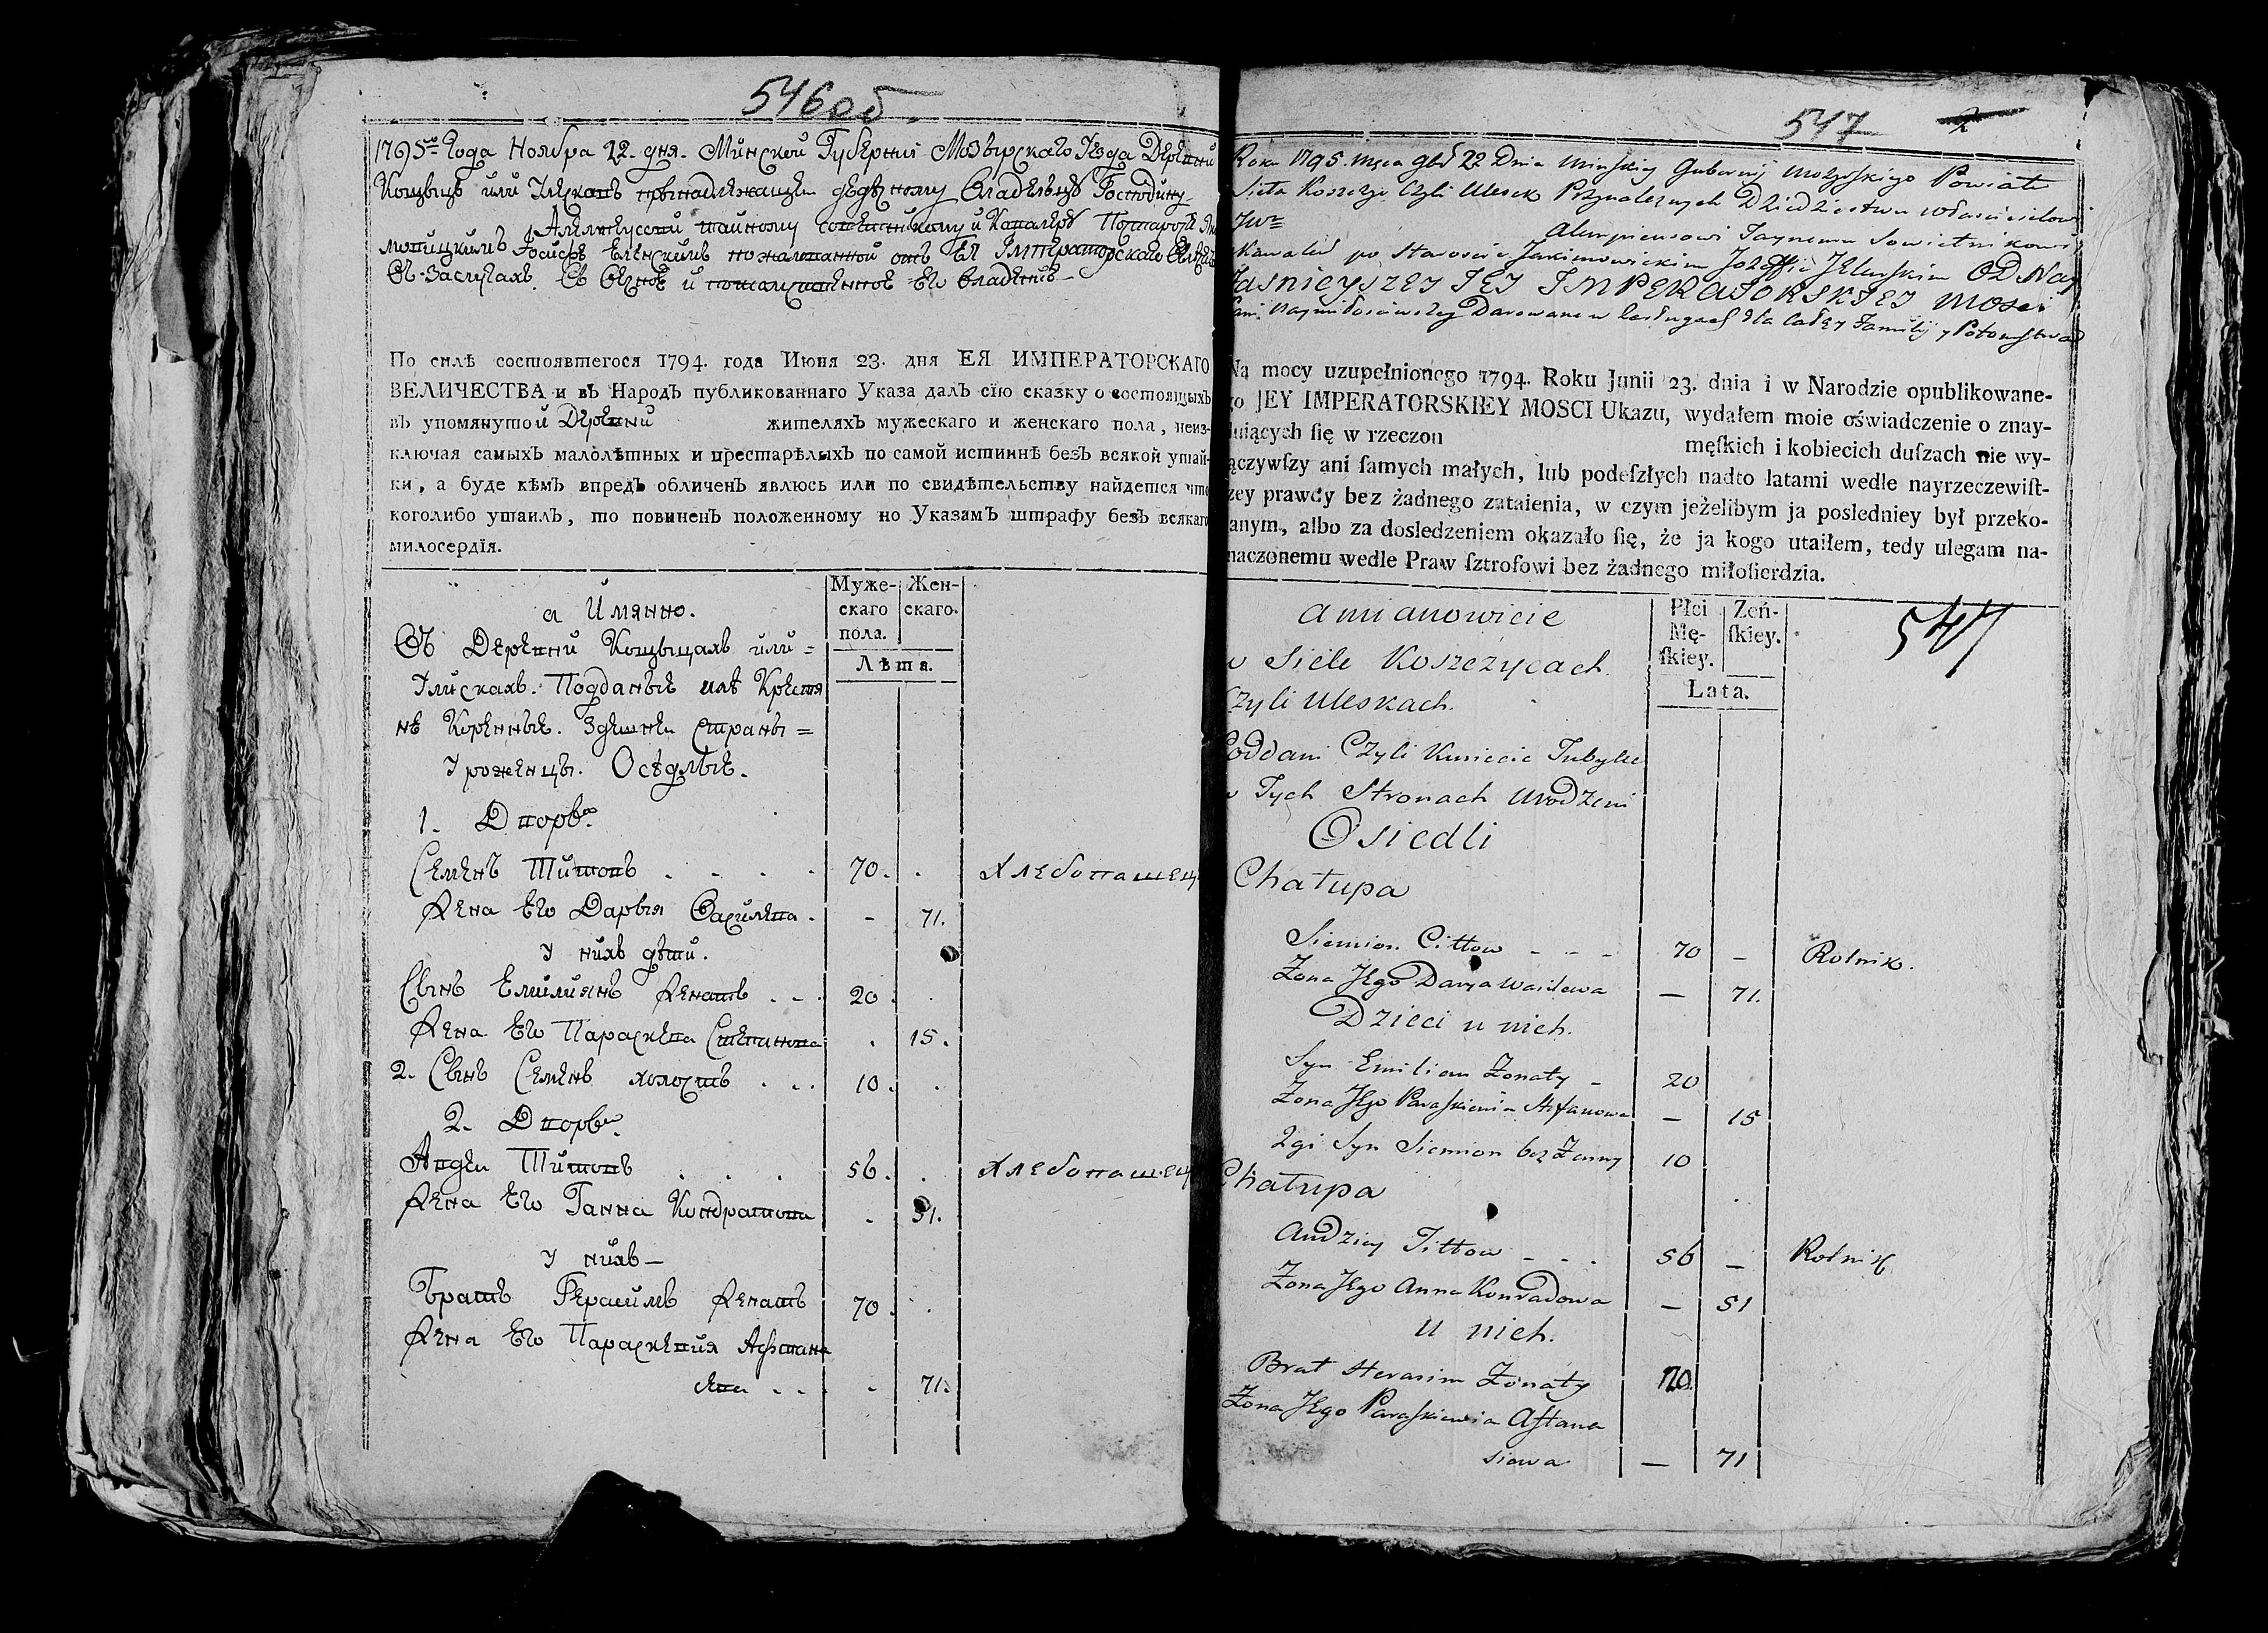 546об.
1795го Года Ноября 22. дня. Минской Губернии Мозырскаго Уезда Деревни
Кощыцъ или Улескахъ принадлежащей дедичному Владельцу Господину
тайному советнику и Кавалеру
Иосифу Еленскимъ пожалованной отъ Ея Императорскаго
въ вечное и потомственное Его владение
По силѣ состоявшегося 1794. года Июня 23. дня ЕЯ ИМПЕРАТОРСКАГО
ВЕЛИЧЕСТВА и въ Народъ публикованнаго Указа далъ сїю сказку о состоящыхъ
въ упомянутой Деревни жителяхъ мужескаго и женскаго пола, неиз-
ключая самыхъ малолѣтныхъ и престарѣлыхъ по самой истиннѣ безъ всякой утай-
ки, а буде кѣмъ впредь обличенъ явлюсь или по свидѣтельству найдется что
коголибо утаилъ, то повиненъ положенному по Указамъ штрафу безъ всякаго
милосердїя.
Муже- Жен-
скаго скаго.
пола.
Лѣта.
а Имянно.
Въ Деревни Кощыцахъ или =
Улискахъ. Подданые иле Крестя
не Коренные. Здешней страны =
Уроженцы. Оседлые.
1. Дворъ.
Семенъ Титовъ . . . . 70. . Хлебопашец
Жена Его Дарья Василева . - 71.
У нихъ дети.
Сынъ Емилиянъ женатъ . . 20 . .
Жена Его Параскева Степанова . 15.
2. Сынъ Семенъ холостъ . . . 10. .
2. Дворъ.
Андеи Титовъ . . . 56. . Хлебопашец
Жена Его Ганна Кондратова . 51.
У нихъ –
Братъ Герасимъ женатъ 70. .
Жена Его Параскевия Афтана
сева . . . - 71.
547 2
Roku 1795. msca 9br 22 Dnia Minskiey Gubernij Mozyrskiego Powiatu
Sieła Koszczyc Czyli Ulesek Przynależnych Dziedzictwu własścicielowi
JWu
Taynemu Sowietnikowi y
Kawalerowi po Starościc Jakimowickim Jozeffie Jeleńskim OD Nay
JAŚNIEYSZEJ JEJ IMPERATORSKIEJ MOSCI
Pani Naymiłościwszey Darowane w zasługach dla Całey Familij y Potomstwa
Na mocy uzupełnionego 1794. Roku Junii 23. dnia i w Narodzie opublikowane-
go JEY IMPERATORSKIEY MOSCI Ukazu, wydałem moie oświadczenie o znay-
duiących ſię w rzeczon męſkich i kobiecich duſzach nie wy-
łączywſzy ani ſamych małych, lub podeſzłych nadto latami wedle nayrzeczewiſt-
ſzey prawdy bez żadnego zataienia, w czym jeżelibym ja posledniey był przeko-
nanym, albo za dosledzeniem okazało ſię, że ja kogo utaiłem, tedy ulegam na-
znaczonemu wedle Praw ſztrofowi bez żadnego miłoſierdzia.
Płci Zeń-
Mę- ſkiey.
ſkiey.
Lata.
547
a mianowicie
w Siele Koszczycach.
Czyli Uleskach.
Poddani Czyli Kmiecie Tubylcy
w Tych Stronach Urodzeni
Osiedli
Chałupa
Siemion Cittow - - - 70 – Rolnik.
Żona Jego Darya Wasilewa – 71.
Dzieci u nich.
Syn Emilian Żonaty - 20
Żona Jego Paraskiewia Stefanowa – 15
2gi Syn Siemion bez Żenny 10
Chałupa
Andziey Tittow - . . 56 – Rolnik
Żona Jego Anna Konradowa – 51
U nich.
Brat Herasim Żonaty 70.
Żona Jego Paraskiewia Aftana
siewa – 71